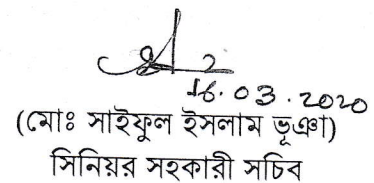 16.03.2020
(মোঃ সাইফুল ইসলাম ভূঞা)
সিনিয়র সহকারী সচিব